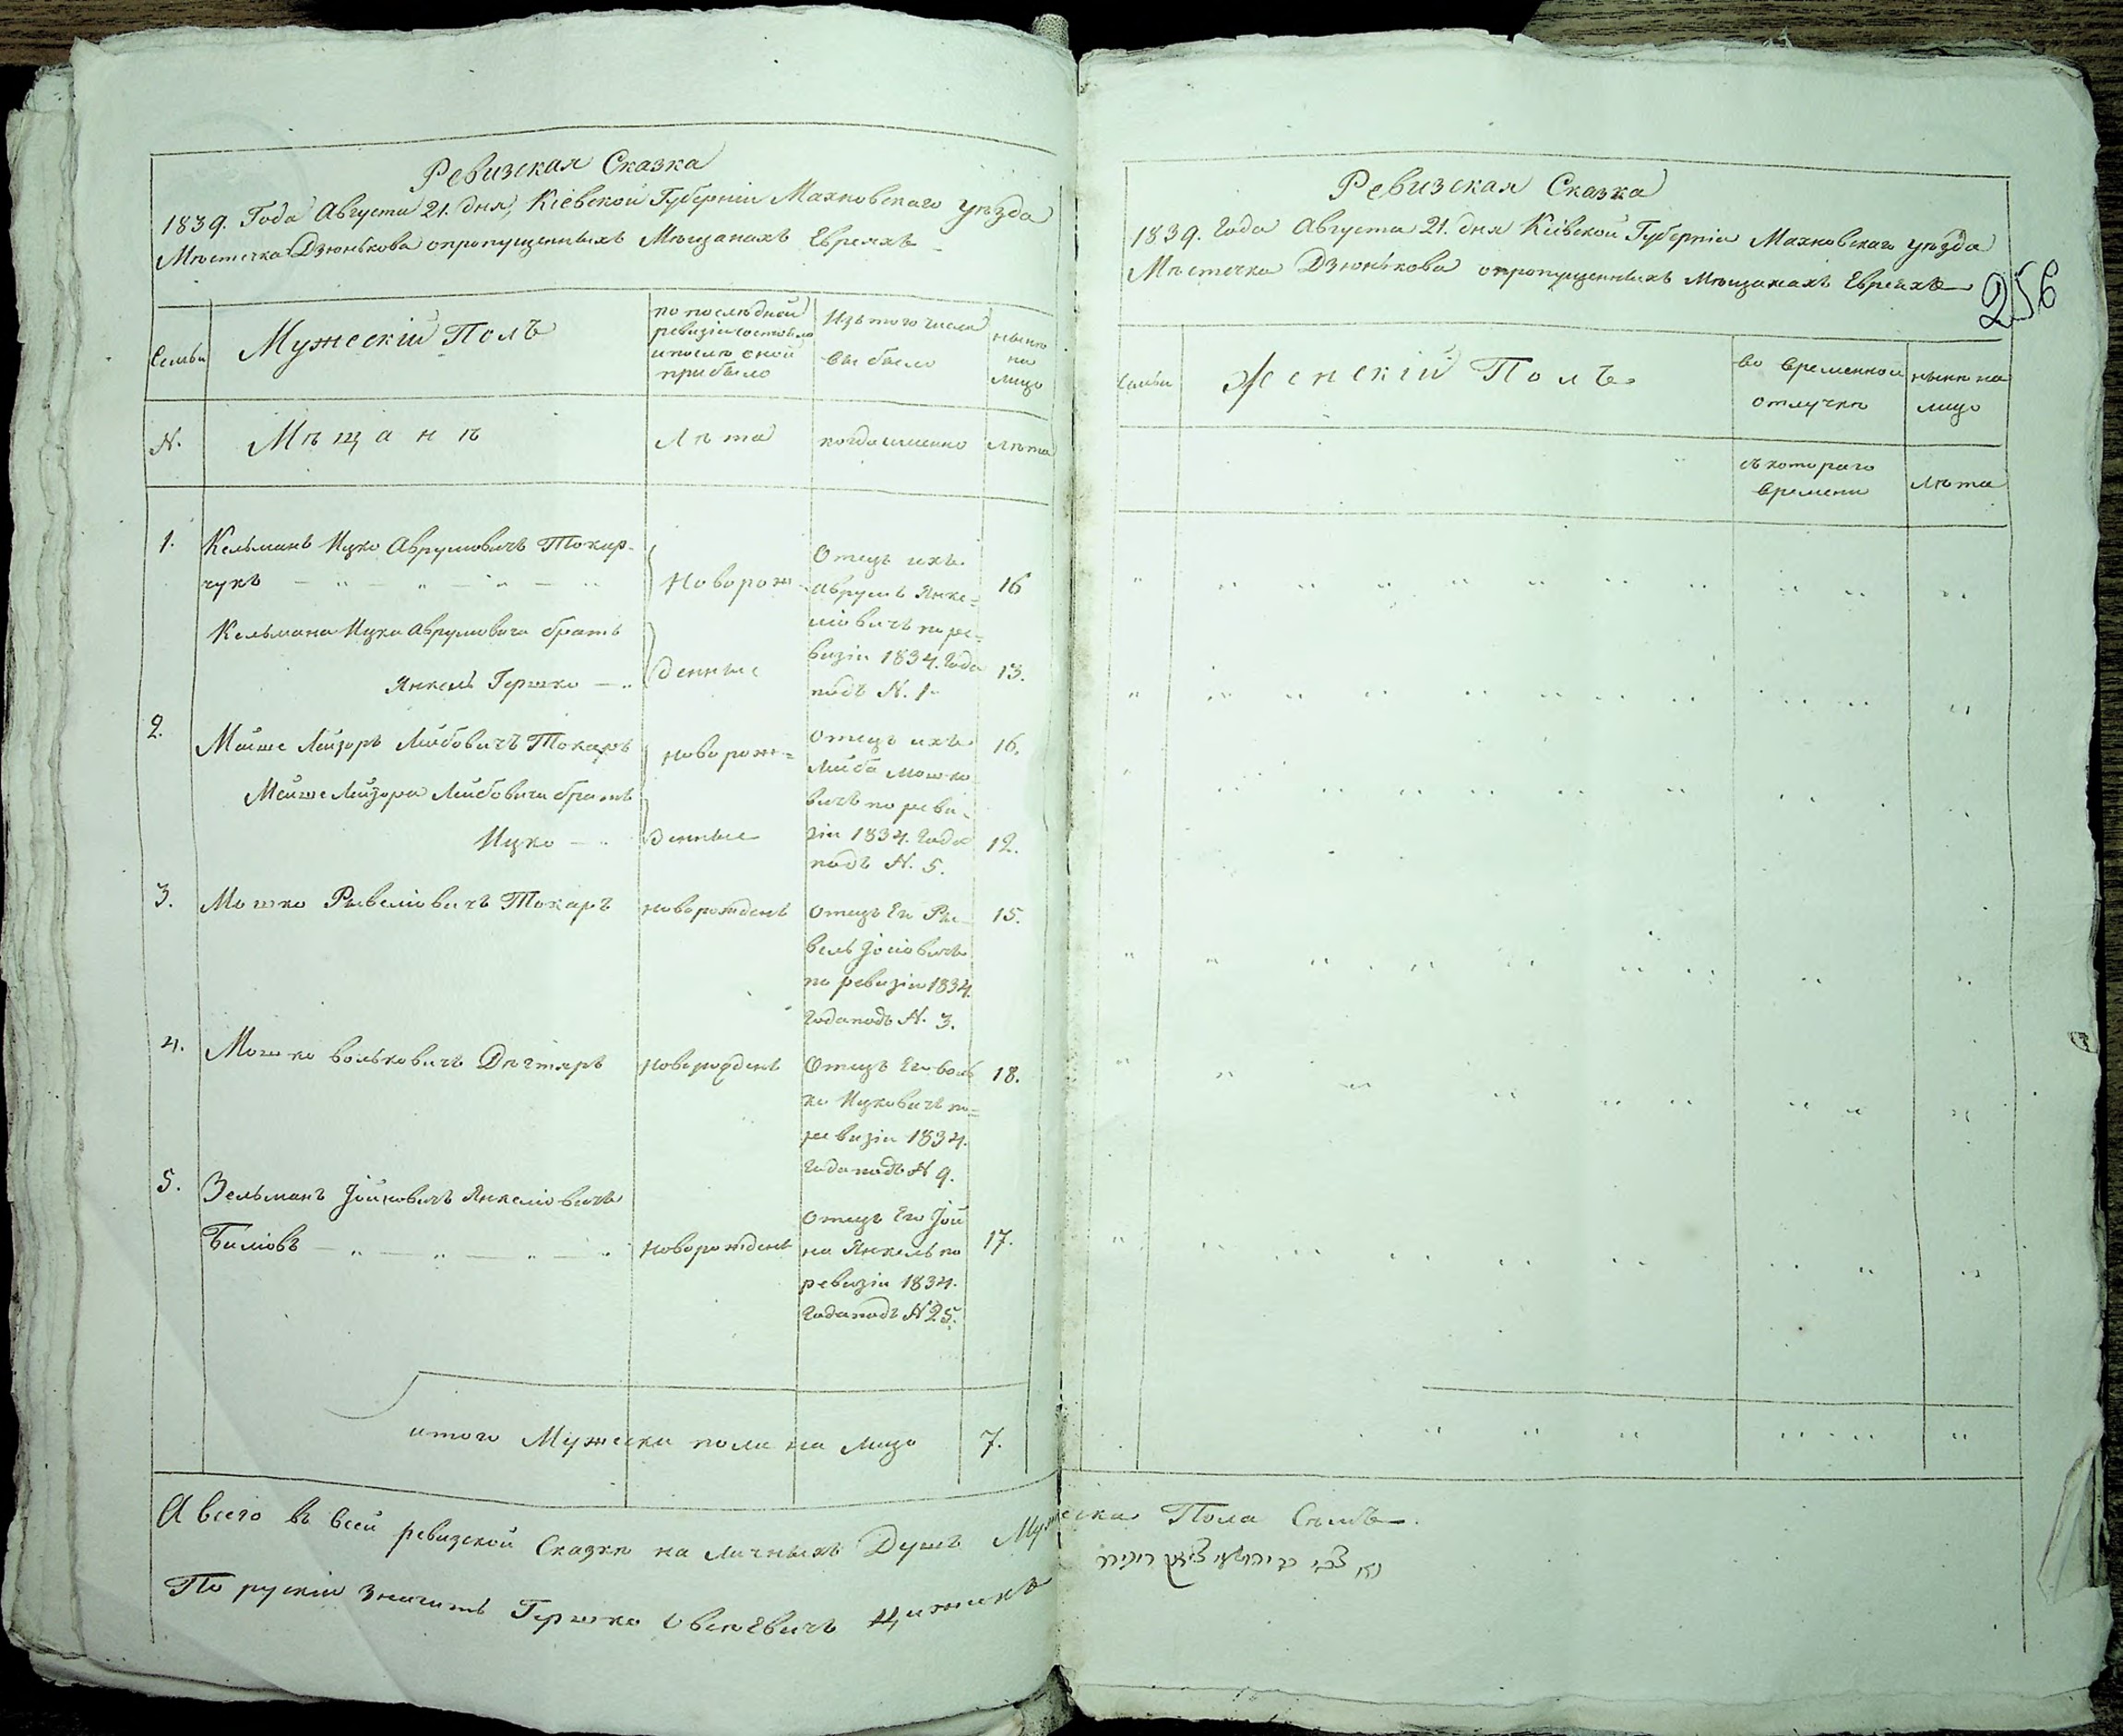 Ревизская Сказка
1839. Года Августа 21. дня, Кіевской Губерніи Махновскаго уѣзда
Мѣстечка Дзюнькова опропущенныхъ Мѣщанахъ Евреяхъ
Семьи
Мужескій Полъ
по послѣдной
ревизіи состояло
и послѣ оной
прибыло
Изъ того числа
выбыло
нынѣ
на
лицо
N.
Мѣщанъ
Лѣта
когда именно
Лѣта
1.
Кельманъ Ицко Аврумовичъ Токар-
чукъ
Новорож-
Отецъ ихъ
Аврумъ Янке-
16
Кельмана Ицка Аврумовича братъ
ліовичъ по ре-
визіи 1834. Года
Янкель Гершко
денные
подъ N. 1
13.
2.
Мойше Лейзоръ Лейбовичъ Токаръ
новорож=
Отецъ ихъ
Лейба Мошко
16.
Мойше Лейзора Лейбовича братъ
вичъ по реви-
Ицко
денные
зіи 1834. Года
подъ N. 5.
12.
3.
Мошко Рывеліовичъ Токаръ
новорожденъ
Отецъ Его Ры-
вель Іосіовичъ
по ревизіи 1834.
Года подъ N. 3.
15.
4.
Мошко Вольковичъ Дѣгтяръ
новорожденъ
Отецъ Его Воль
ко Ицковичъ по=
ревизіи 1834.
Года подъ N 9.
18.
5.
Зельманъ Іойновичъ Янкеліовичъ
Билювъ
новорожденъ
Отецъ Его Іой
на Янкель по
ревизіи 1834.
Года подъ N 25.
17.
итого Мужеска пола на лицо
7.
Ревизская Сказка
1839. Года Августа 21. дня Кіевской Губерніи Махновскаго уѣзда
Мѣстечка Дзюнькова опропущенныхъ Мѣщанахъ Евреяхъ
256
Семьи
Женскій Полъ
во временной
отлучкѣ
нынѣ на
лицо
съ котораго
времени
Лѣта
А всего въ всей ревизской Сказкѣ на личныхъ Душъ Мужеска Пола Семь
По рускіи значитъ Гершко Овсѣевичъ